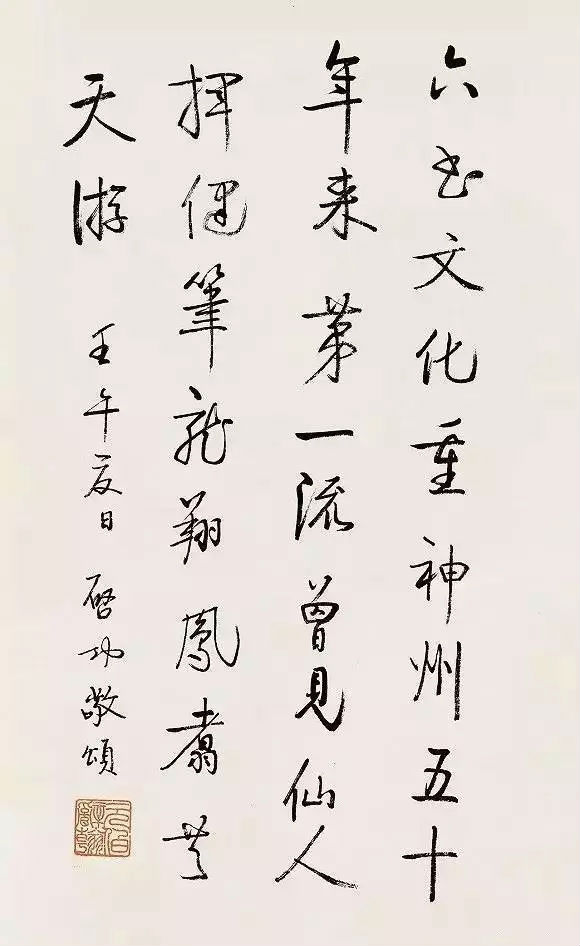 六书文化重神州五十
年来第一流曾見仙人
揮健筆龍翔鳳翥共
天游 壬午夏日 啓功敬頌